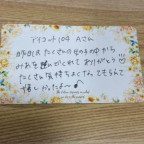 アイコット104 Aさん
昨日はたくさんの女の子の中から
みあを選んでくれて ありがとう♡
たくさん気持ちよくなってもらえて
嬉しかったな〜♪